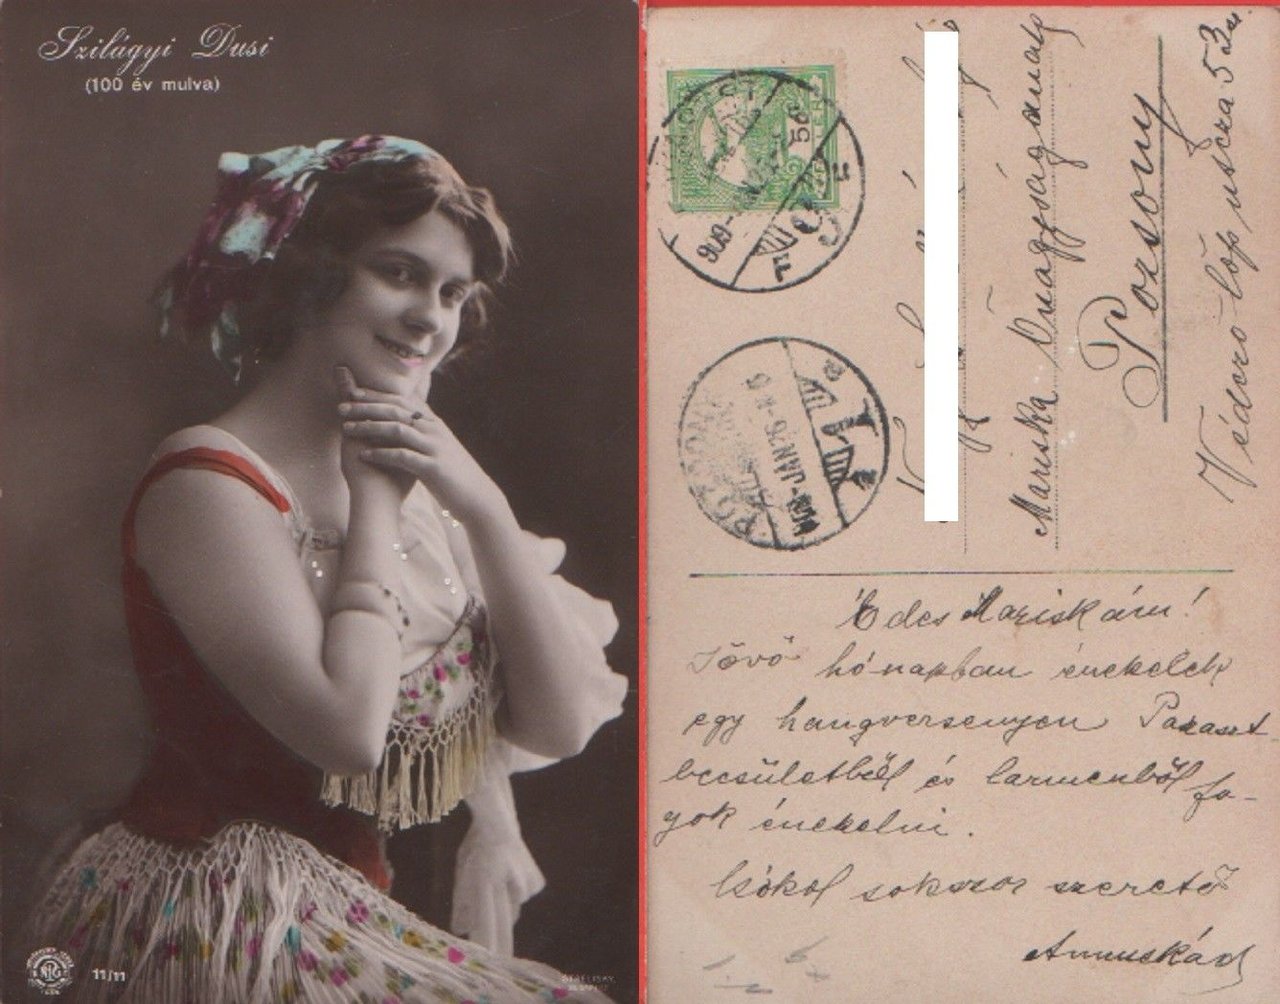 Szilágyi Dusi
(100 év mulva)
11/11
Mariska Őnagyságának
Pozsony
Védcző löp utcza 53
Édes Mariskám!
Jövő hónapban énekelek
egy hangversenyen Paraszt-
becsületből és Carmenből fo-
gok énekelni.
Csókol sokszor szerető
Annuskád